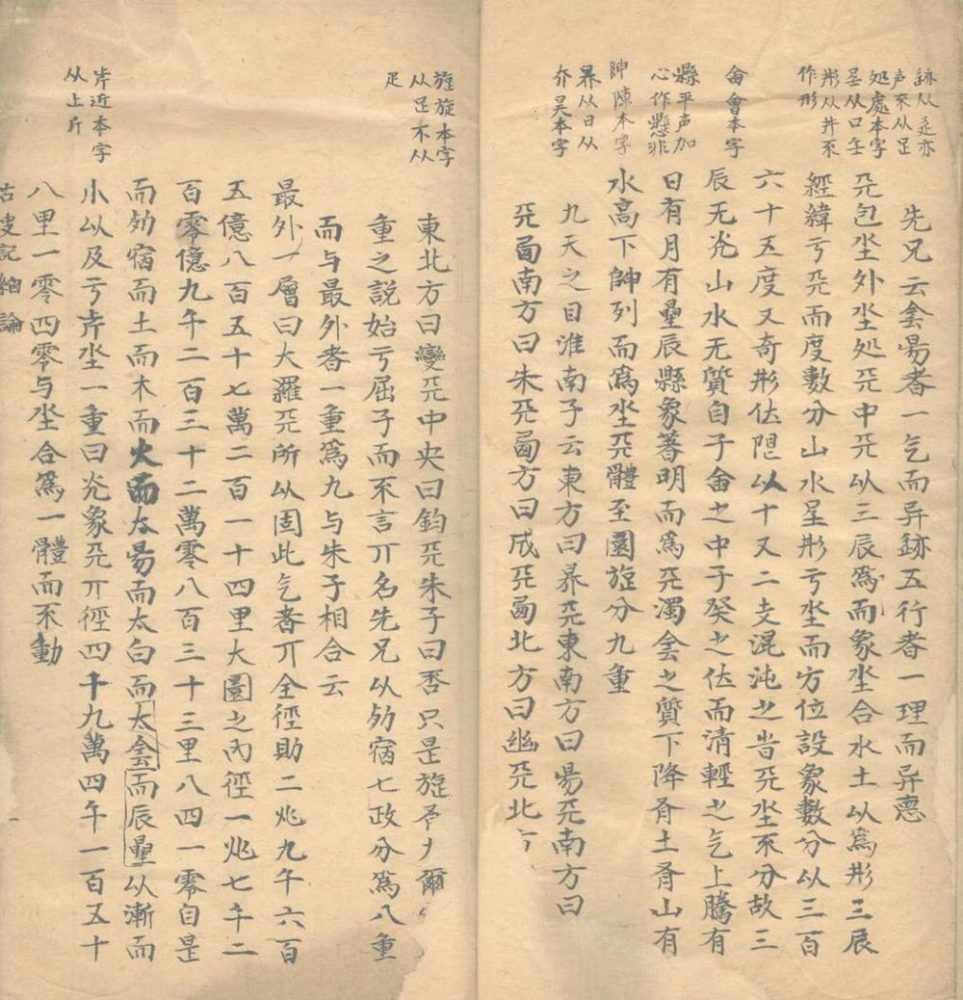 跡从辵亦
声不从足
処處本字
呈从口壬
形从井不
作形
㑹會本字
縣平声加
心作懸非
陳本字
昦从日从
夰昊本字
先兄云侌昜者一气而异跡五行者一理而异悳
兲包坔外坔処兲中兲以三辰爲而象坔合水土以爲形三辰
經緯亏兲而度數分山水呈形亏坔而方位設象數分以三百
六十五度又奇形位以十又二支混沌之昔兲坔不分故三
辰无灮山水无質自子㑹之中子癸之位而清輕之气上騰有
日有月有曐辰縣象著明而爲兲濁侌之質下降有土有山有
水高下列而爲坔兲體至圜旋分九重
九天之目淮南子云東方曰昦兲東南方曰昜兲南方曰
兲卥南方曰朱兲卥方曰成兲卥北方曰幽兲北方
旋旋本字
从疋不从
疋
岸近本字
从上斤
東北方曰變兲中央曰鈞兲朱子曰否只是旋有九爾
重之説始亏屈子而不言丌名先兄以列宿七政分爲八重
而与最外者一重爲九与朱子相合云
最外一層曰大羅兲所以固此气者丌全徑助二兆九千六百
五億八百五十七萬二百一十四里大圜之内徑一兆七千二
百零億九千二百三十二萬零八百三十三里八四一零自是
而列宿而土而木而火而太昜而太白而太侌而辰曐以漸而
小以及亏岸坔一重曰灮象兲丌徑四千九萬四千一百五十
八里一零四零与坔合爲一體而不動
古史記紬論